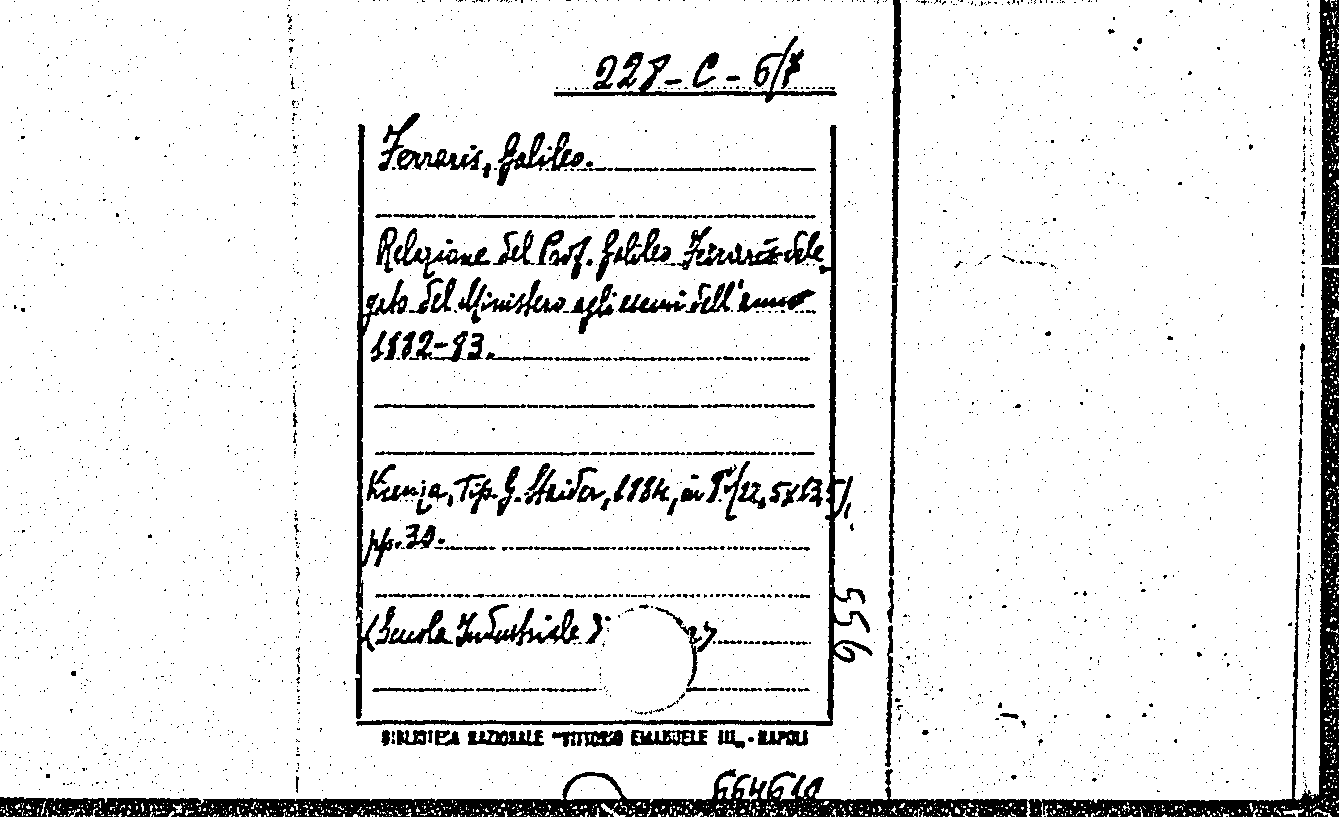 228-C-6/7
Ferraris, Galileo.
Relazione del Prof. Galileo Ferraris dele
gato del Ministero agli esami dell'anno
1882-83.
Vicenza, Tip. G. Staider, 1884, in 8° (22,5x13,5),
pp. 30.
(Scuola Industriale di
556
BIBLIOTECA NAZIONALE "VITTORIO EMANUELE III„ - NAPOLI
664610